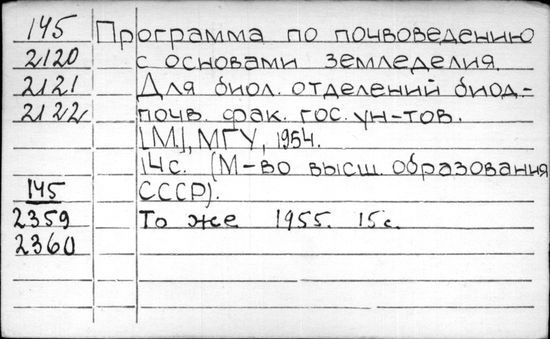 145 Программа по почвоведению
2120 с основами земледелия.
2121 Для биол. отделений биол.-
2122 почв. фак. гос. ун-тов.
[М.], МГУ, 1954.
14с. (М-во высш. образования
145 СССР).
2359 То же 1955. 15с.
2360